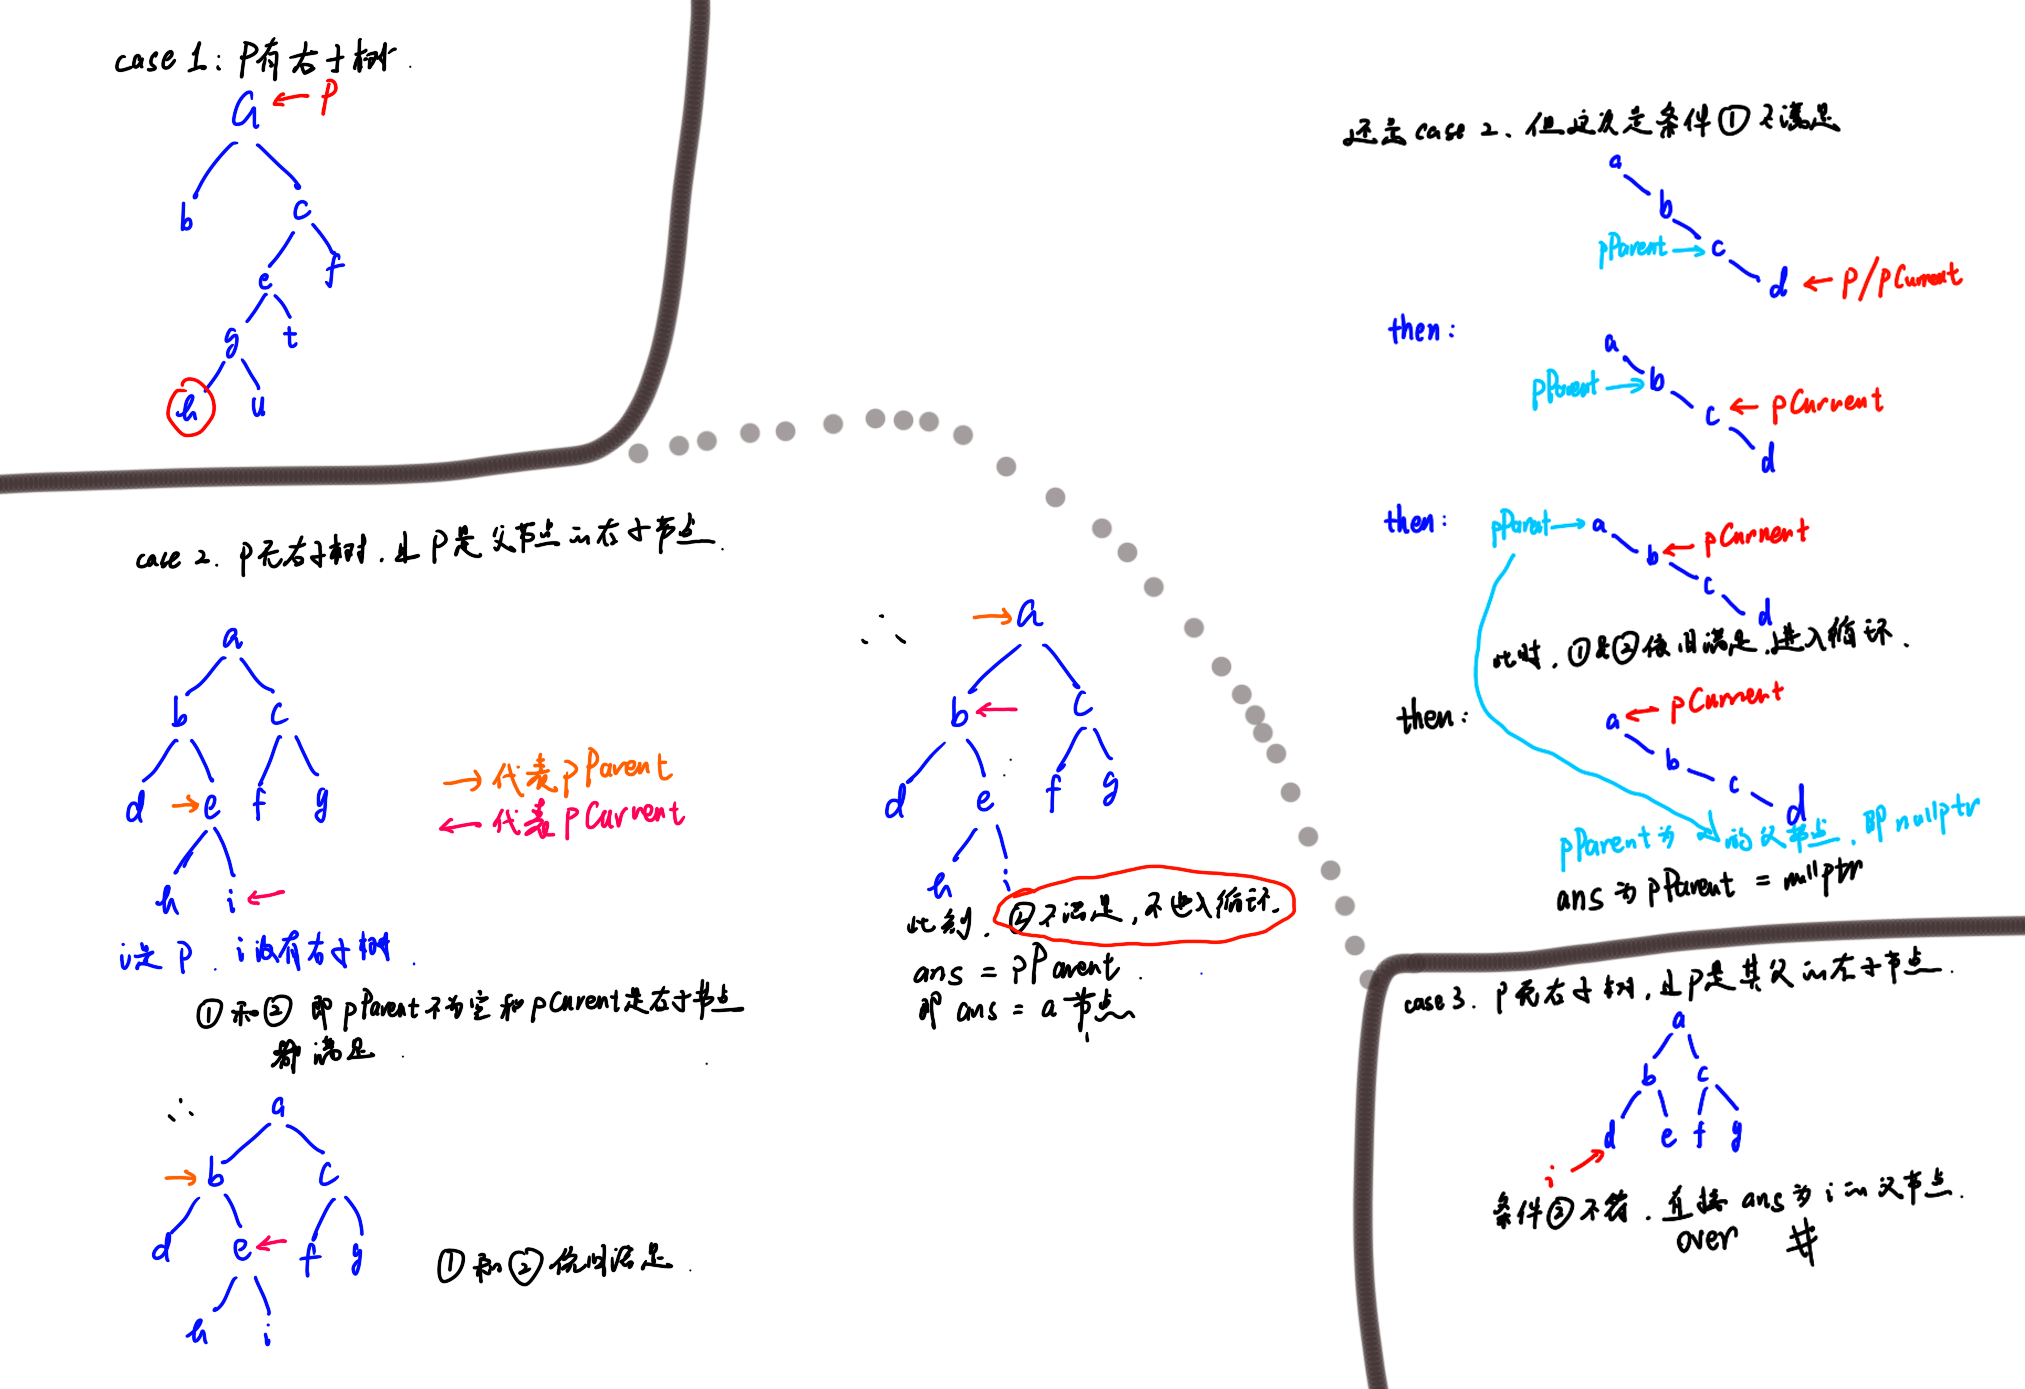 case 1: P有右子树.
a ← P
b c
e f
g t
h u
case 2. P无右子树.且P是父节点的右子节点.
a
b c
d → e f g
h i ←
→ 代表pParent
← 代表pCurrent
i是P. i没有右子树.
①和② 即pParent不为空和pCurrent是右子节点
都满足.
∴ a
→ b c
d e ← f g
h i
①和②依旧满足.
∴ → a
b ← c
d e f g
h i
此刻. ②不满足,不进入循环.
ans = pParent.
即ans = a节点
还是case 2. 但这次是条件①不满足
a
b
pParent → c
d ← P/pCurrent
then:
a
pParent → b
c ← pCurrent
d
then: pParent → a
b ← pCurrent
c
d
此时. ①是②依旧满足.进入循环.
then: a ← pCurrent
b
c
d
pParent为a的父节点.即nullptr
ans为pParent = nullptr
case 3. P无右子树,且P是其父的左子节点.
a
b c
d e f g
i →
条件②不符.直接ans为i的父节点.
over #